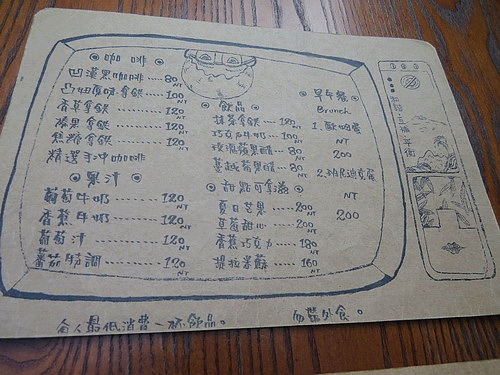 咖啡
凹漢黑咖啡....80 NT
凸妞厚奶拿鐵....100 NT
香草拿鐵....120 NT
榛果拿鐵....120 NT
焦糖拿鐵....120 NT
精選手沖咖啡
果汁
葡萄牛奶....120 NT
香蕉牛奶....120 NT
葡萄汁....120 NT
蕃茄特調....120 NT
飲品
抹茶拿鐵....120 NT
巧克力牛奶....100 NT
玫瑰蘋果醋....80 NT
蔓越莓果醋....80 NT
甜點可事滿
夏日芒果....200 NT
草莓甜心....200 NT
香蕉巧克力....180 NT
提拉米蘇....160 NT
早午餐
Brunch
1.歐姆蛋
NT
200
2.班尼迪克蛋
NT
200
每人最低消費一杯飲品。
勿帶外食。